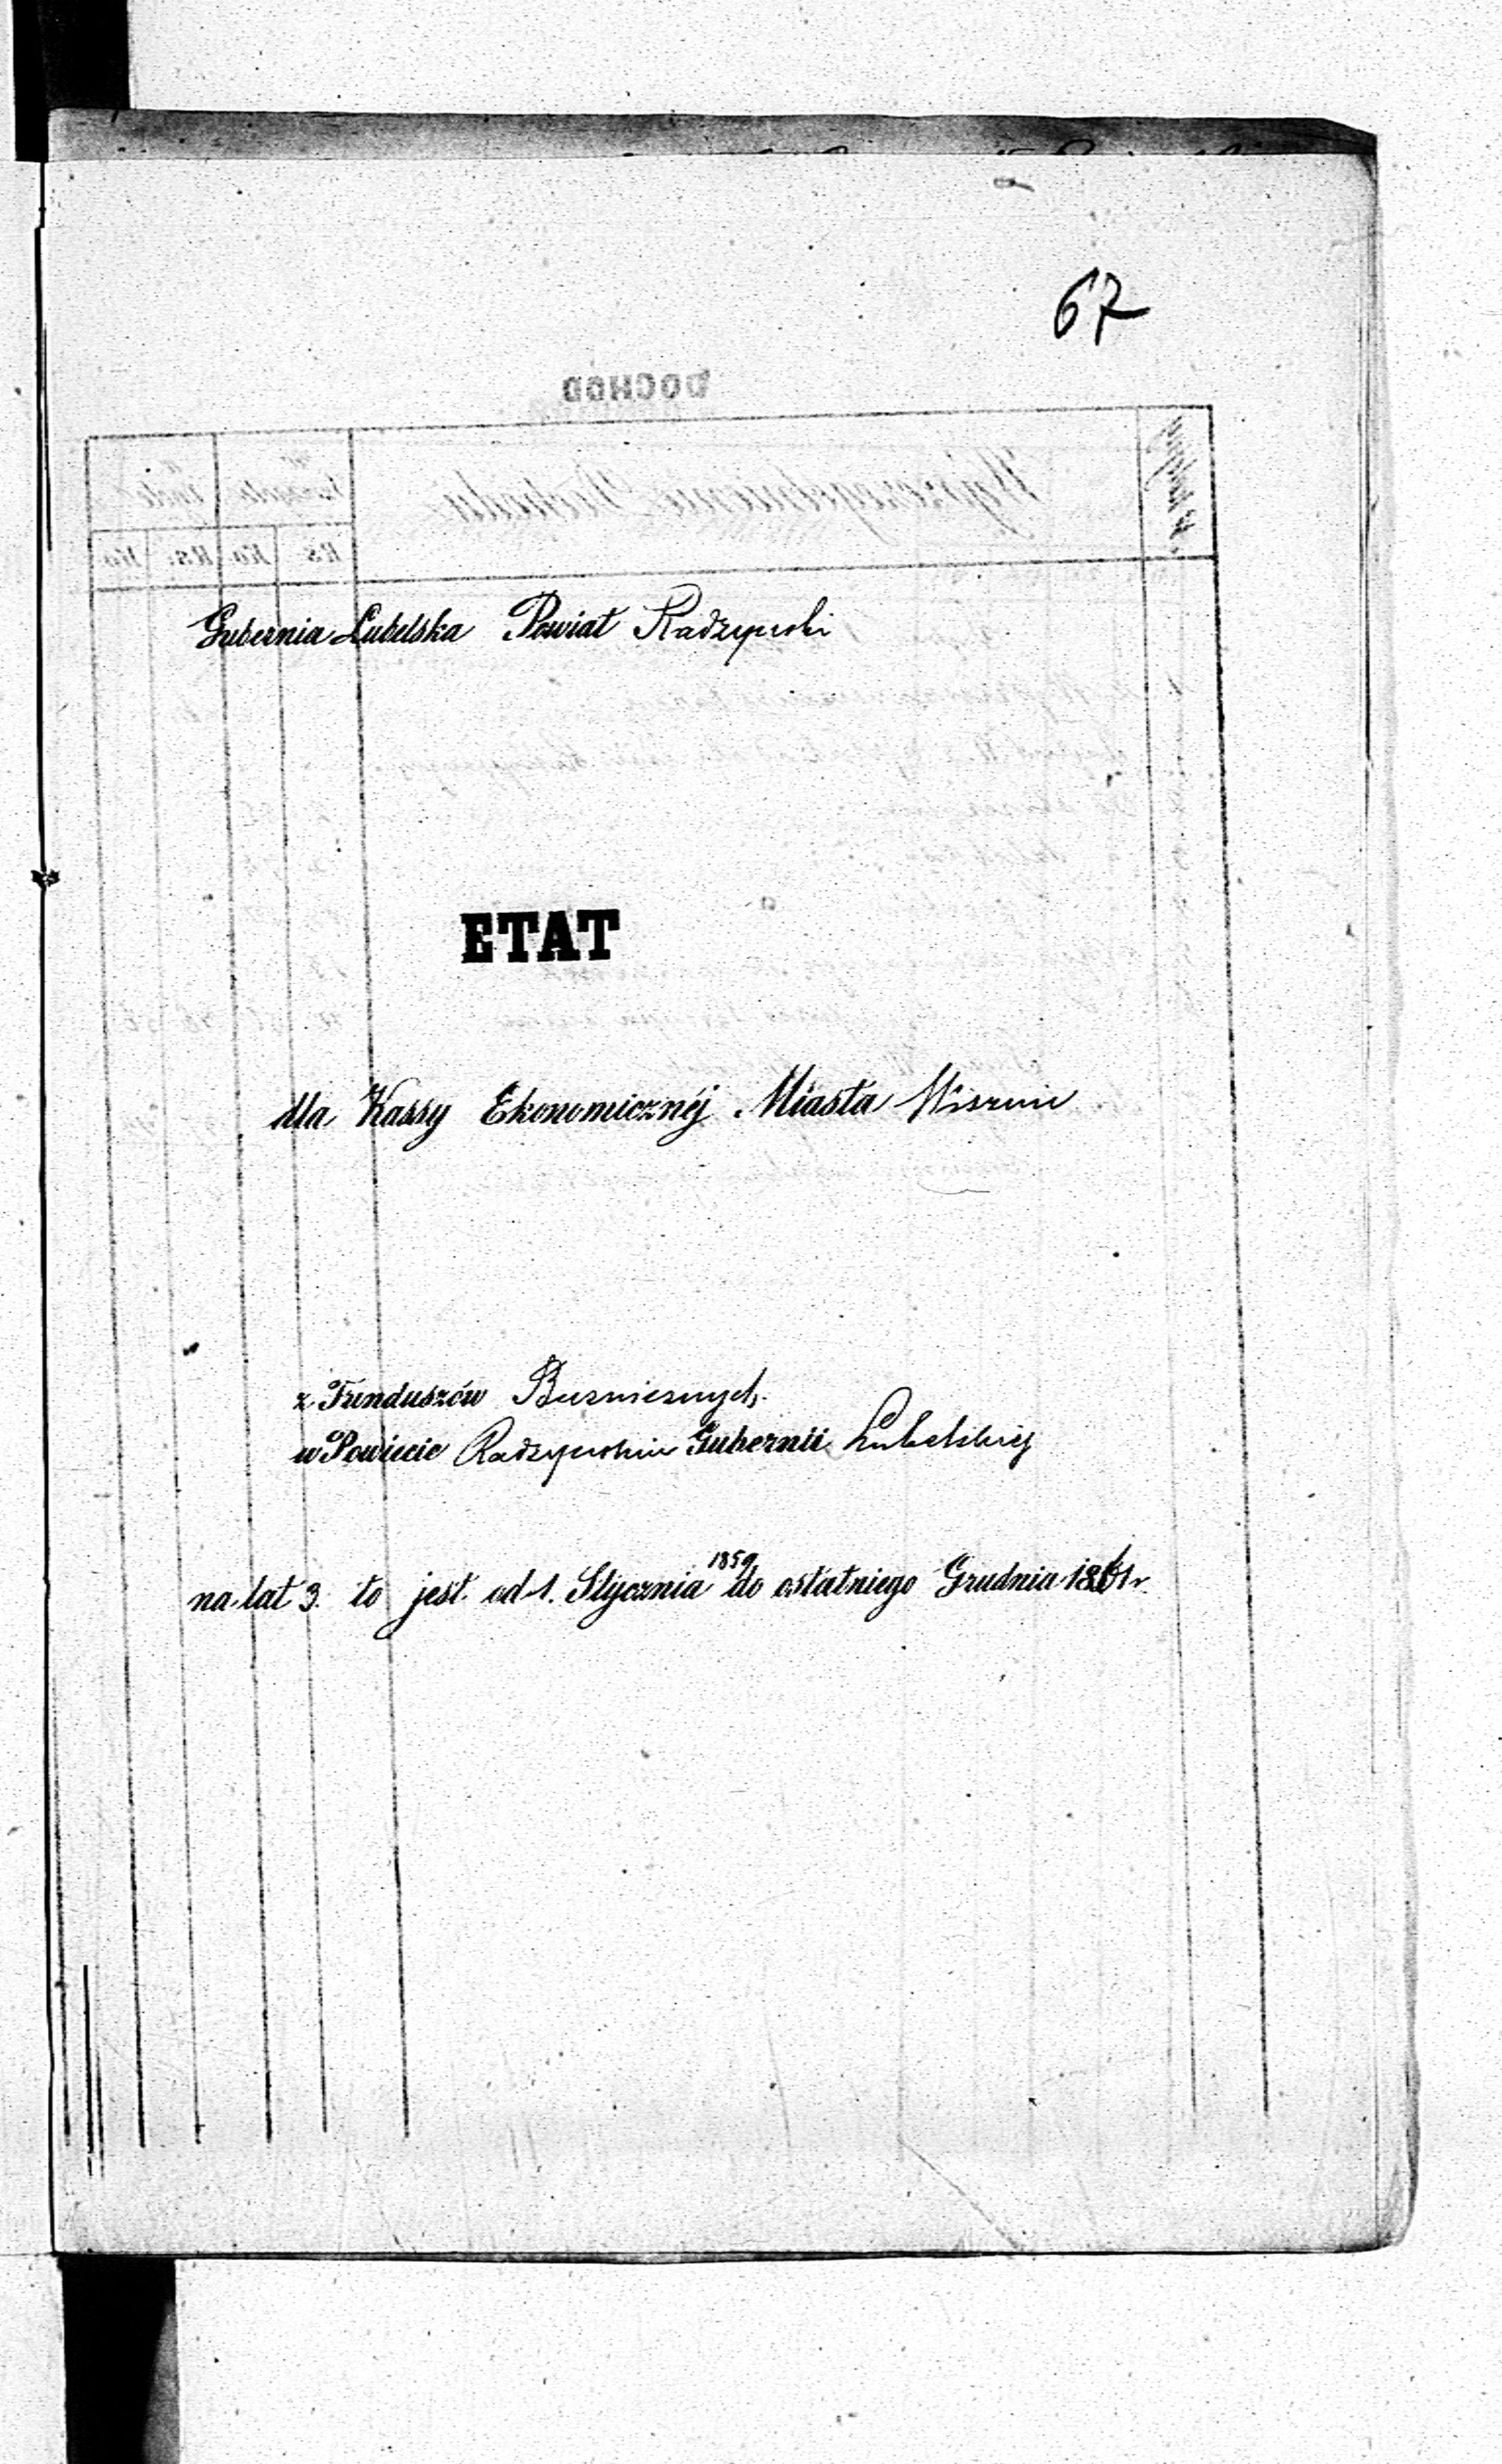 67
Gubernia Lubelska Powiat Radzyński
ETAT
dla Kassy Ekonomicznéj Miasta
z Funduszów Buznicznych
w Powiecie Radzyńskim Gubernii Lubelskiéj
1859
na lat 3. to jest od 1. Stycznia do ostatniego Grudnia 1861 r.